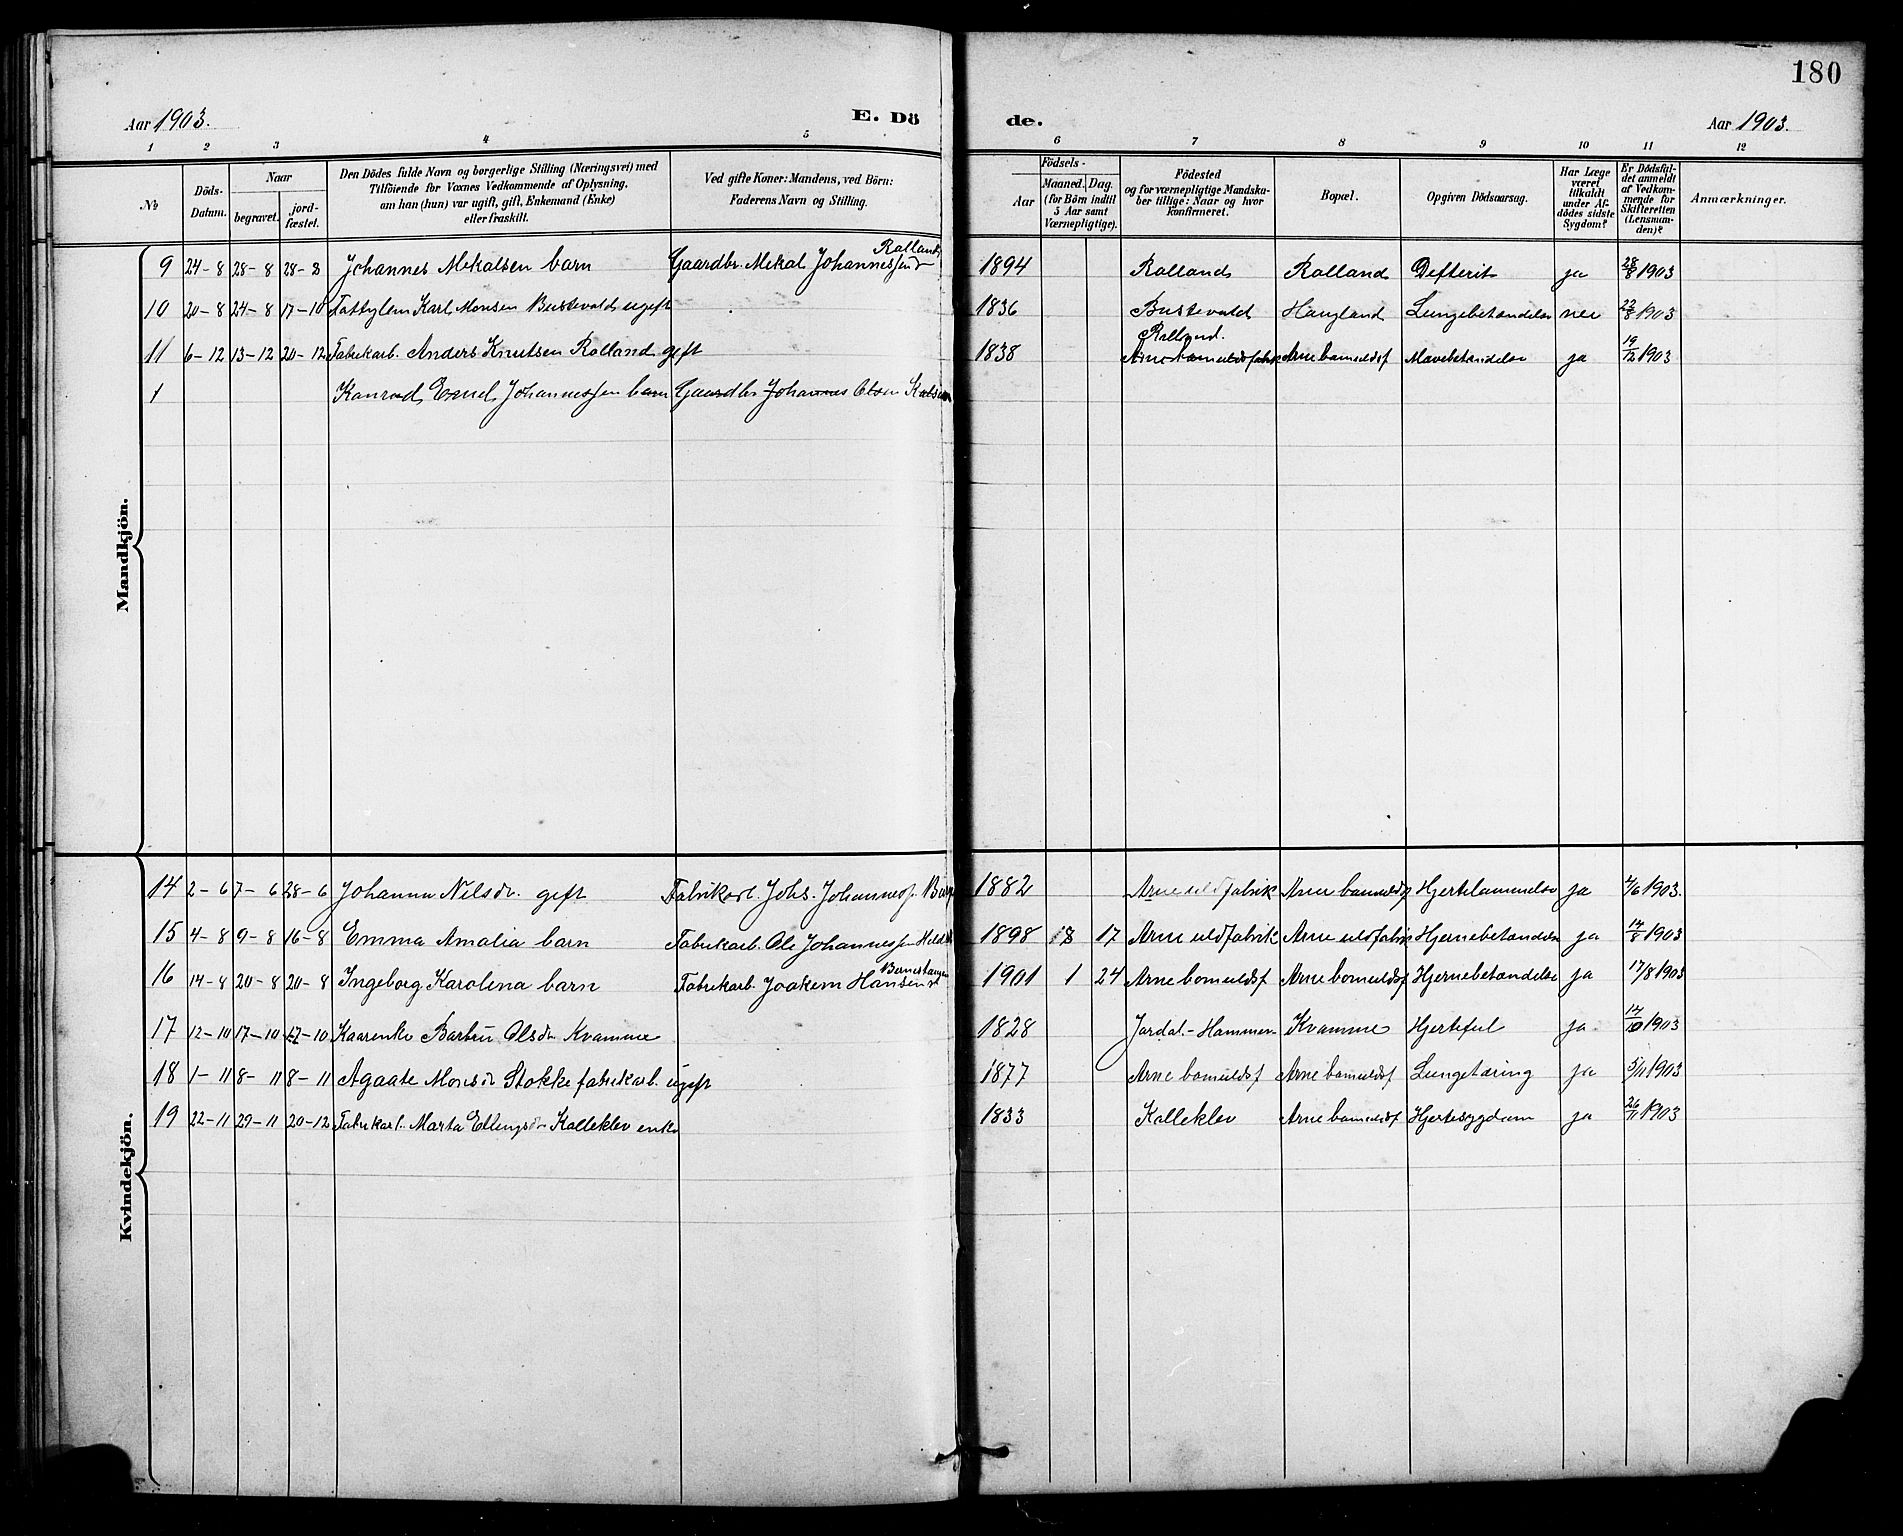 180
Aar 1903.
E. Dö
de.
Aar 1903.
1 2 3 4 5 6 7 8 9 10 11 12
№
Döds-Datum.
Naar
begravet.
jord-fæstet.
Den Dödes fulde Navn og borgerlige Stilling (Næringsvei) med
Tilföiende for Voxnes Vedkommende af Oplysning,
om han (hun) var ugift, gift, Enkemand (Enke)
eller fraskilt.
Ved gifte Koner: Mandens, ved Börn:
Faderens Navn og Stilling.
Födsels-
Aar
Maaned. Dag.
(for Börn indtil
5 Aar samt
Værnepligtige).
Födested
og for værnepligtige Mandska-
ber tillige: Naar og hvor
konfirmeret.
Bopæl.
Opgiven Dödsaarsag.
Har Læge
været
tilkaldt
under Af-
dödes sidste
Sygdom?
Er Dödsfal-
det anmeldt
af Vedkom-
mende for
Skifteretten
(Lensman-
den)?
Anmærkninger.
Mandkjön.
9 24-8 28-8 28-8 Johannes Mekalsen barn Gaardbr. Mekal Johannessen Rolland 1894 Rolland Rolland Defterit ja 28/8 1903
10 20-8 24-8 17-10 Fattylem Karl Monsen Bustevold ugift 1836 Bustevold Haugland Lungebetendelse nei 22/8 1903
11 6-12 13-12 20-12 Fabrikarb. Anders Knutsen Rolland gift 1838 Rolland. Arne bomuldsfabrik Arne bomuldsf Mavebetendelse ja 19/12 1903
1 Konrad Emil Johannessen barn Gaardbr Johannes Olsen
Kvindekjön.
14 2-6 7-6 28-6 Johanna Nilsdr. gift Fabrikarb. Johs. Johannes 1882 Arne uldfabrik Arne bomuldsf Hjertelammelse ja 4/6 1903.
15 4-8 9-8 16-8 Emma Amalia barn Fabrikarb. Ole Johannessen 1898 8 17 Arne uldfabrik Arne uldfabrik Hjernebetendelse ja 14/8 1903
16 14-8 20-8 20-8 Ingeborg Karolina barn Fabrikarb. Joakim Hansen 1901 1 24 Arne bomuldsf Arne bomuldsf Hjernebetendelse ja 17/8 1903
17 12-10 17-10 17-10 Kaarenke Bartru Olsdr Kvamme 1828 Jordal-Hammer Kvamme Hjertefeil ja 14/10 1903
18 1-11 8-11 8-11 Agaate Monsdr Stokke fabrikarb. ugift 1877 Arne bomuldsf Arne bomuldsf Lungetæring ja 5/11 1903
19 22-11 29-11 20-12 Fabrikarb. Marta Ellingsdr Kalleklev enke 1833 Kalleklev Arne bomuldsf Hjertesygdom ja 26/11 1903